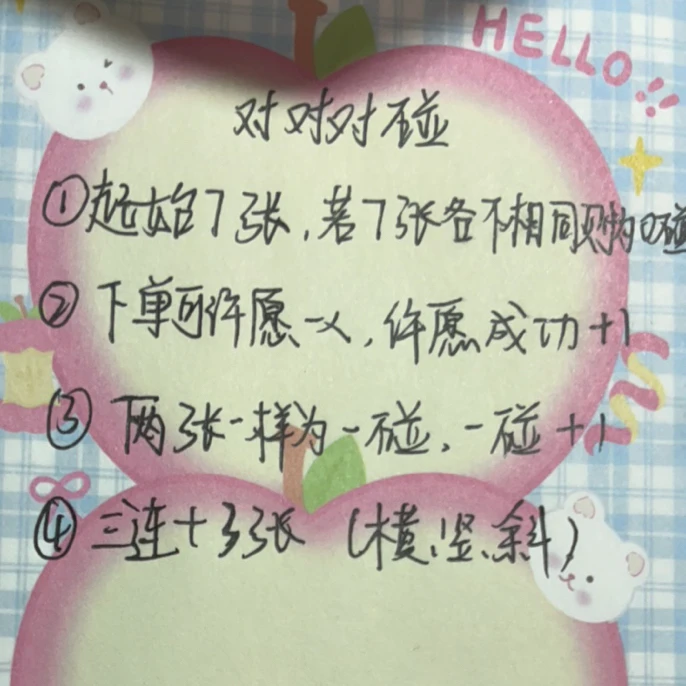 HELLO!!
对对对碰
①起始7张,若7张各不相同则为0碰
②下单可许愿一次,许愿成功+1
③两张一样为一碰,一碰+1
④三连+3张(横、竖、斜)